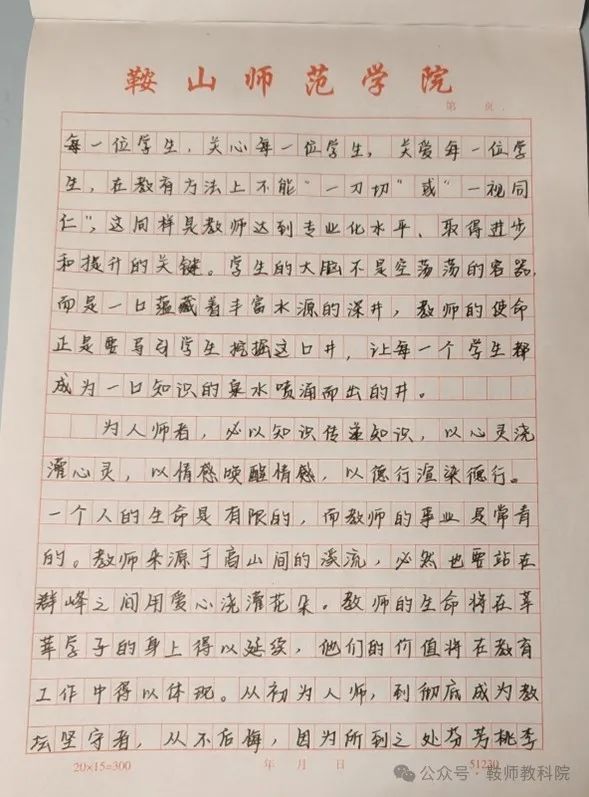 鞍山师范学院
第 页
每一位学生，关心每一位学生，关爱每一位学
生，在教育方法上不能“一刀切”或“一视同
仁”，这同样是教师达到专业化水平、取得进步
和提升的关键。学生的大脑不是空荡荡的容器，
而是一口蕴藏着丰富水源的深井，教师的使命
正是要导引学生挖掘这口井，让每一个学生都
成为一口知识的泉水喷涌而出的井。
为人师者，必以知识传递知识，以心灵浇
灌心灵，以情感唤醒情感，以德行渲染德行。
一个人的生命是有限的，而教师的事业是常青
的。教师来源于高山间的溪流，必然也要站在
群峰之间用爱心浇灌花朵。教师的生命将在莘
莘学子的身上得以延续，他们的价值将在教育
工作中得以体现。从初为人师，到彻底成为教
坛坚守者，从不后悔，因为所到之处芬芳桃李
20×15=300 年 月 日 51230
公众号·鞍师教科院